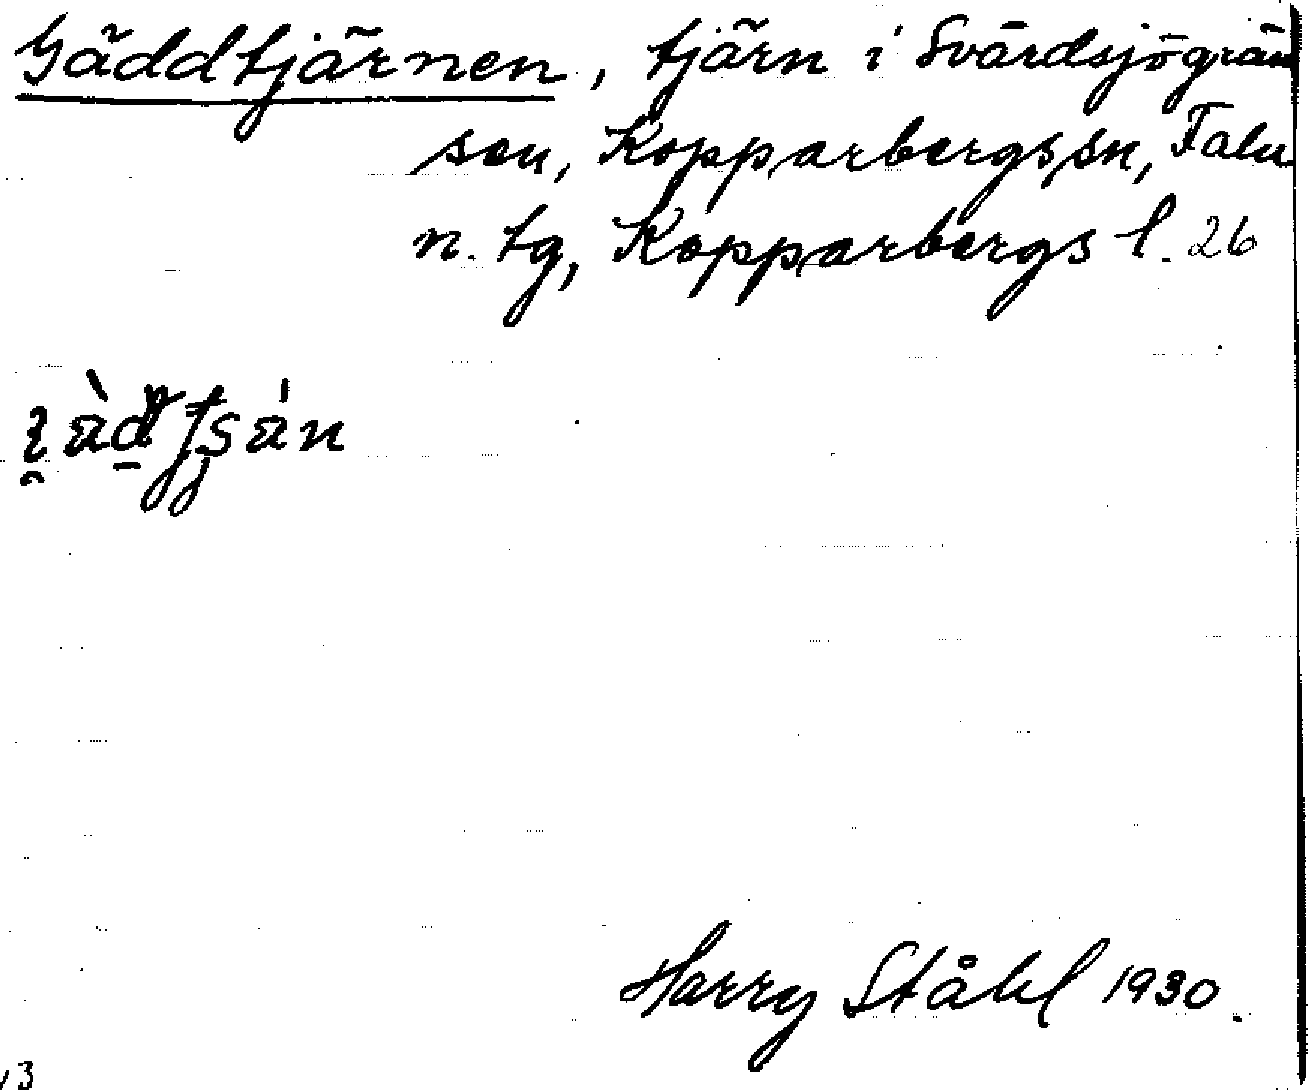 Gäddtjärnen, tjärn i Svärdsjögrän
sen, Kopparbergs sn, Falu
n. tg, Kopparbergs l. 26
Harry Ståhl 1930.